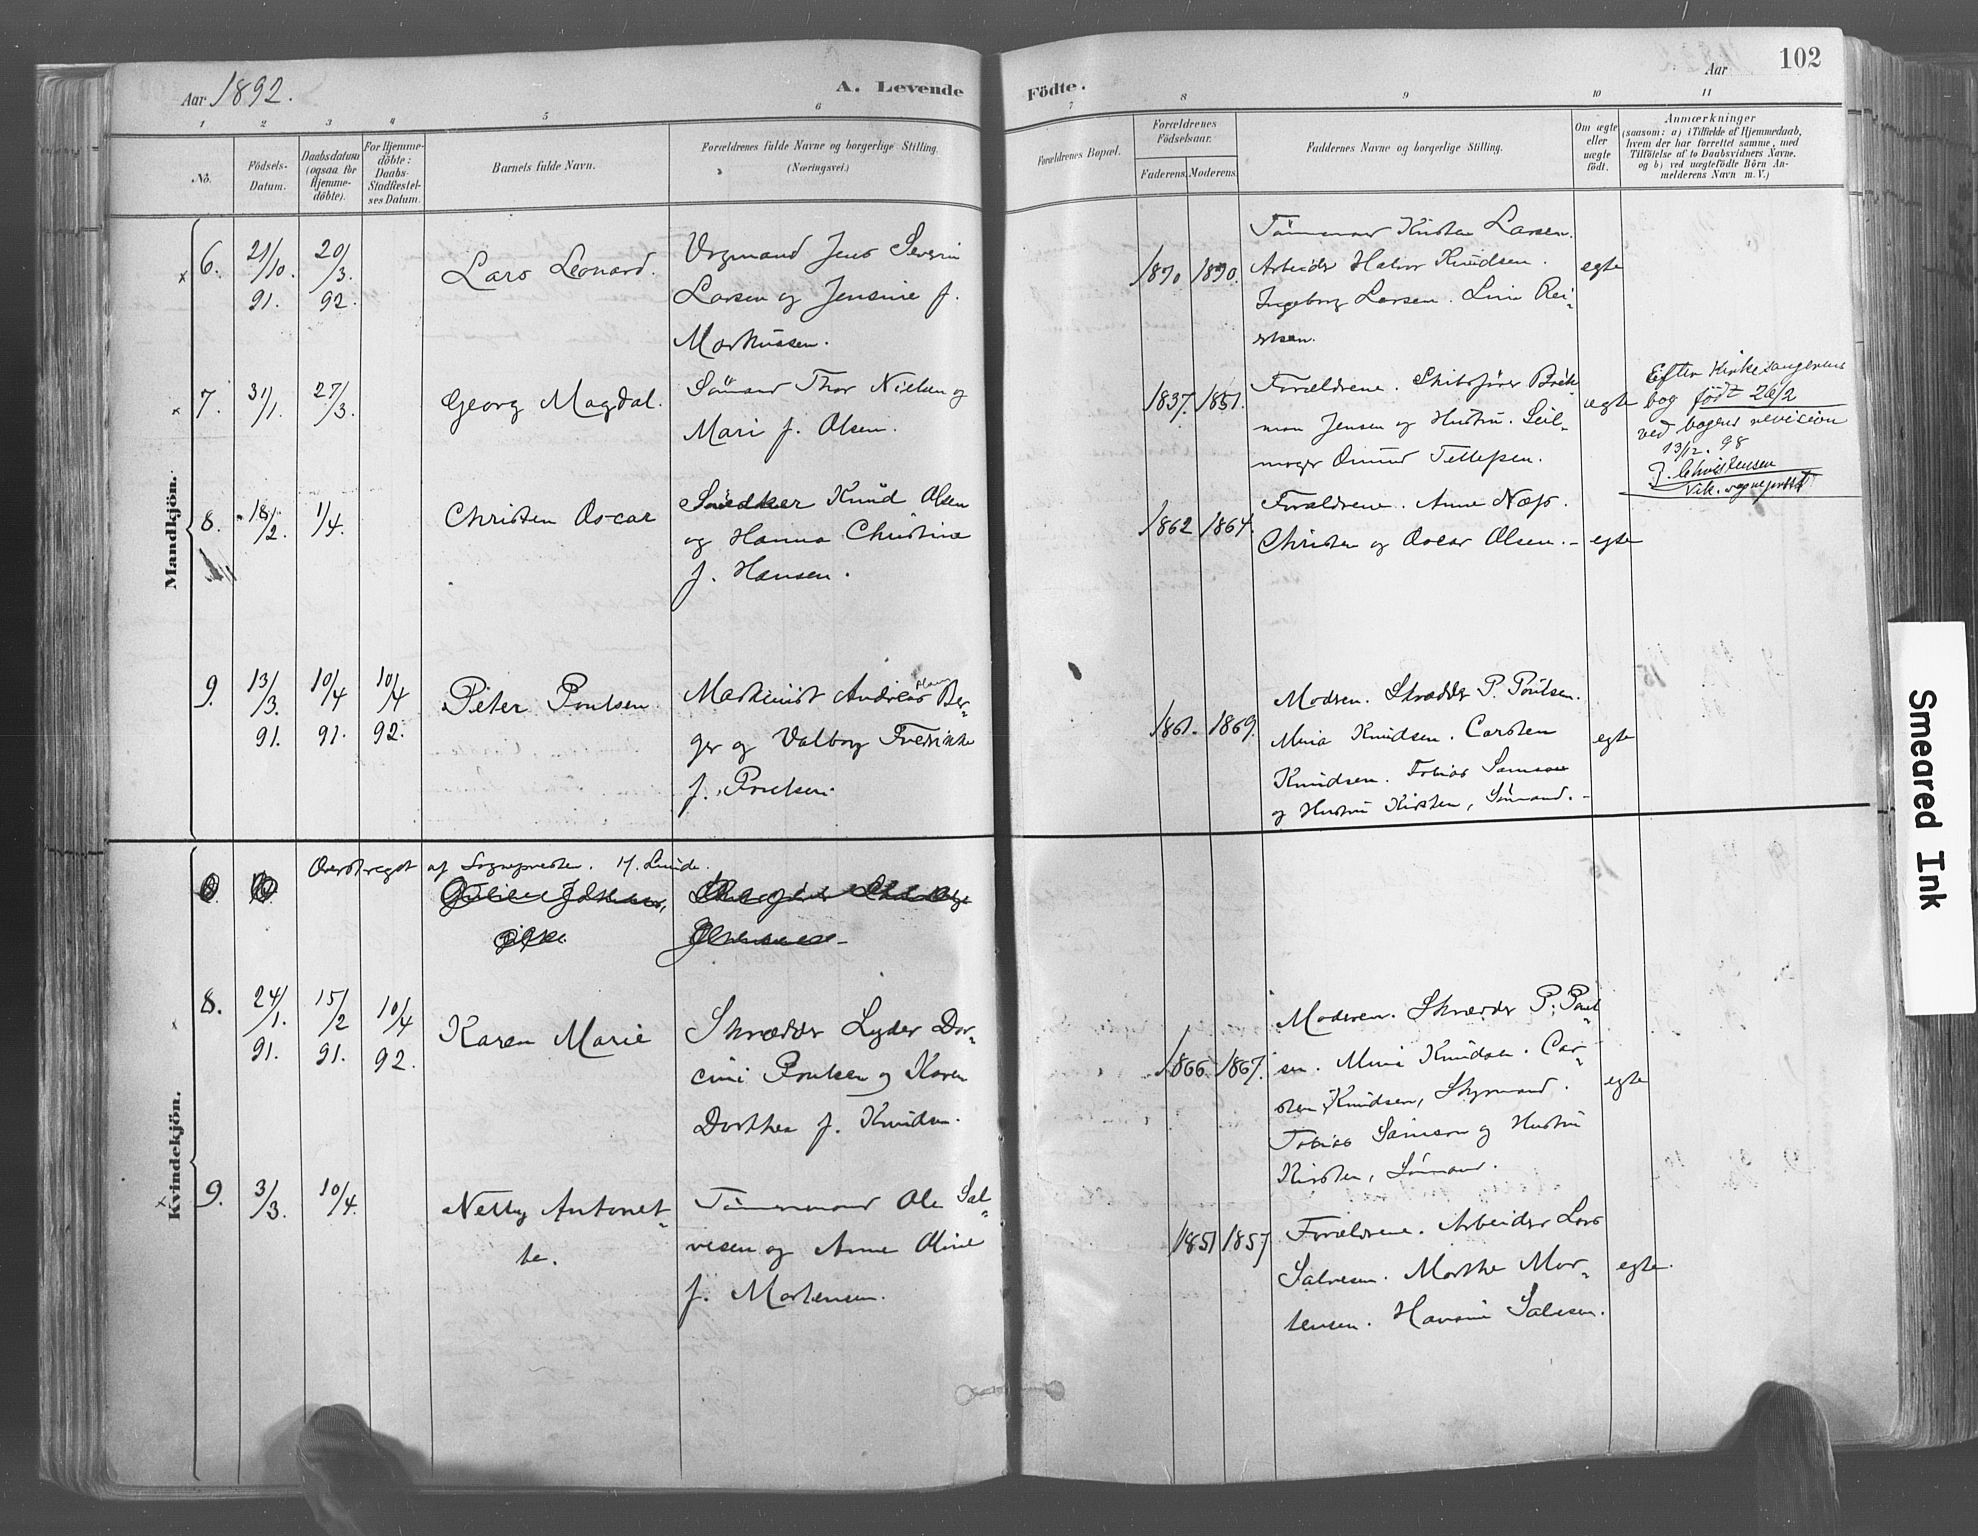 Aar 1892.
A. Levende
Födte.
Aar
102
1 2 3 4 5 6 7 8 9 10 11
No.
Födsels-
Datum.
Daabsdatum
(ogsaa for
Hjemme-
döbte).
For Hjemme-
döbte:
Daabs-
Stadfæstel-
ses Datum.
Barnets fulde Navn.
Forældrenes fulde Navne og borgerlige Stilling.
(Næringsvei.)
Forældrenes Bopæl.
Forældrenes
Födselsaar.
Faderens. Moderens.
Faddernes Navne og borgerlige Stilling.
Om ægte
eller
uægte
födt.
Anmærkninger
(saasom: a) i Tilfælde af Hjemmedaab,
hvem der har forrettet samme, med
Tilföielse af to Daabsvidners Navne.
og b) ved uægtefödte Börn An-
melderens Navn m. V.)
Mandkjön.
6.
21/10.
91.
20/3.
92.
Lars Leonard.
Jens Severin
Larsen og Jensine f.
Markussen.
1870 1870.
Tömmermand Kristen Larsen.
Arbeider Halvor Knudsen.
Ingeborg Larsen. Line Rei-
ersen.
egte
7.
31/1.
27/3.
Georg Magdal.
Sömand Thor Nielsen og
Mari f. Olsen.
1837. 1851.
Forældrene. Skibsförer Brek-
man Jensen og Hustru. Seil-
mager Omund Tellefsen.
egte
Efter Kirkesangerens
bog födt 26/2
ved bogens revision
13/12. 98
J. Christensen
vik. sogneprest
8.
18/2.
1/4.
Christen Oscar
Snedker Knud Olsen
og Hanna Christine
f. Hansen.
1862 1864.
Forældrene. Anne Næss.
Christen og Oscar Olsen. -
egte
9.
13/3.
91.
10/4
91.
10/4
92.
Peter Poulsen.
Maskinist Andreas Ber-
ger og Valborg Fredrikke
f. Poulsen.
1861. 1869.
Modren. Skrædder P. Poulsen.
Mina Knudsen. Carsten
Knudsen. Tobias Samson
og Hustru Kirsten, Sömand. -
egte
Kvindekjön.
Overströget af Sognepresten. H. Lunde.
8.
24/1.
91.
15/2
91.
10/4
92.
Karen Marie
Skrædder Lyder Dor-
cini Poulsen og Karen
Dorthea f. Knudsen.
1866. 1867.
Moderen. Skrædder P. Poul-
sen. Mina Knudsen. Car-
sten Knudsen, Styrmand.
Tobias Samson og Hustru
Kirsten, Sömand.
egte
9.
3/3.
10/4.
Netty Antonet-
te.
Tömmermand Ole Sal-
vesen og Anne Oline
f. Mortensen.
1851 1857
Forældrene. Arbeider Lars
Salvesen. Marthe Mor-
tensen. Salvesen.
egte.
Smeared Ink